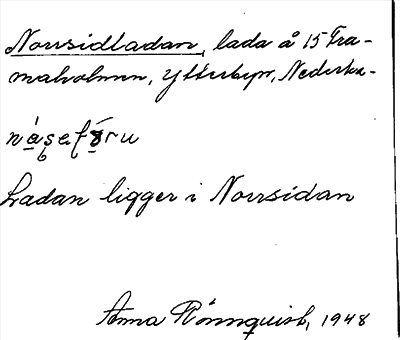 Norrsidladan, lada å 15 Tra-
maholmen, Ytterbyn, Nederka-
Ladan ligger i Norrsidan
Anna Rönnquist, 1948